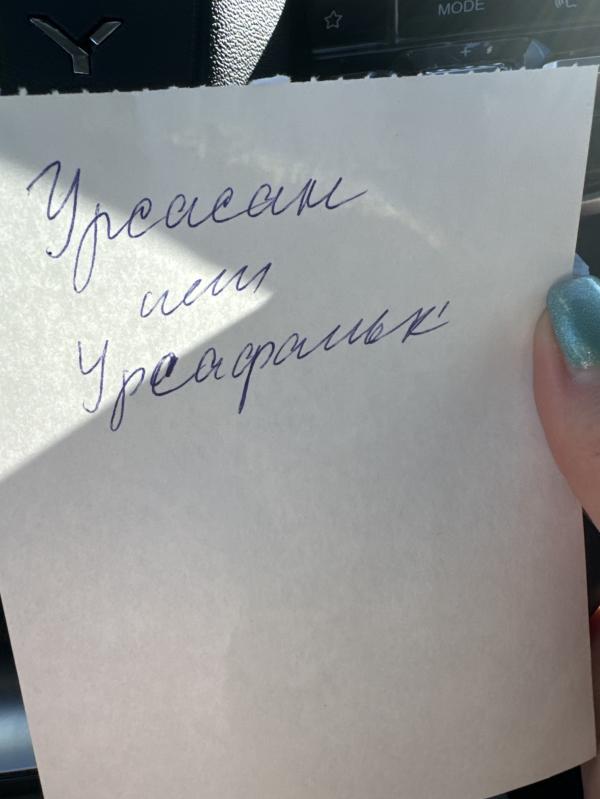 MODE
Урсасан
или
Урсафальк